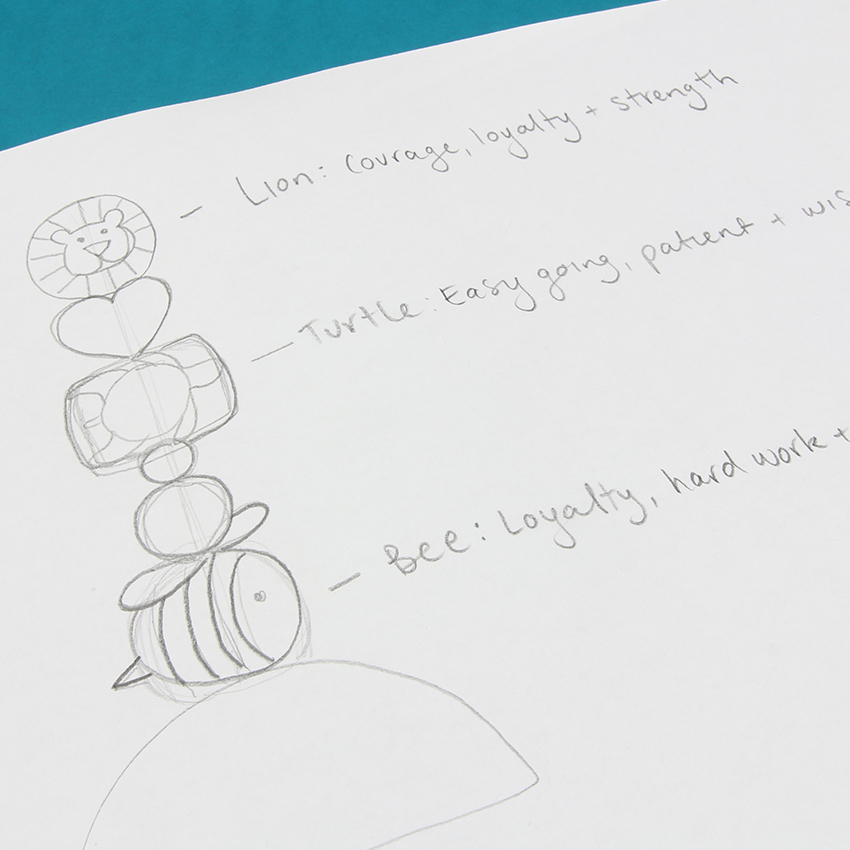 – Lion: Courage, loyalty + strength
– Turtle: Easy going, patient +
– Bee: Loyalty, hard work +